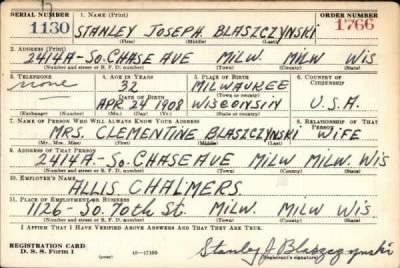 SERIAL NUMBER 1. NAME (Print) ORDER NUMBER
1130 STANLEY JOSEPH BLASZCZYNSKI 1766
(First) (Middle) (Last)
2. ADDRESS (Print)
2414A-SO. CHASE AVE MILW. MILW WIS
(Number and street or R. F. D. number) (Town) (County) (State)
3. TELEPHONE 4. AGE IN YEARS 5. PLACE OF BIRTH 6. COUNTRY OF CITIZENSHIP
none 32 MILWAUKEE
DATE OF BIRTH (Town or county)
APR 24 1908 WISCONSIN U.S.A.
(Exchange) (Number) (Mo.) (Day) (Yr.) (State or country)
7. NAME OF PERSON WHO WILL ALWAYS KNOW YOUR ADDRESS 8. RELATIONSHIP OF THAT PERSON
MRS. CLEMENTINE BLASZCZYNSKI WIFE
(Mr., Mrs., Miss) (First) (Middle) (Last)
9. ADDRESS OF THAT PERSON
2414A-SO. CHASE AVE MILW MILW. WIS
(Number and street or R. F. D. number) (Town) (County) (State)
10. EMPLOYER'S NAME
ALLIS CHALMERS
11. PLACE OF EMPLOYMENT OR BUSINESS
1126-SO. 70th St. MILW. MILW WIS
(Number and street or R. F. D. number) (Town) (County) (State)
I AFFIRM THAT I HAVE VERIFIED ABOVE ANSWERS AND THAT THEY ARE TRUE.
REGISTRATION CARD
D. S. S. Form 1 (over) 16—17105 Stanley J Blaszczynski
(Registrant's signature)